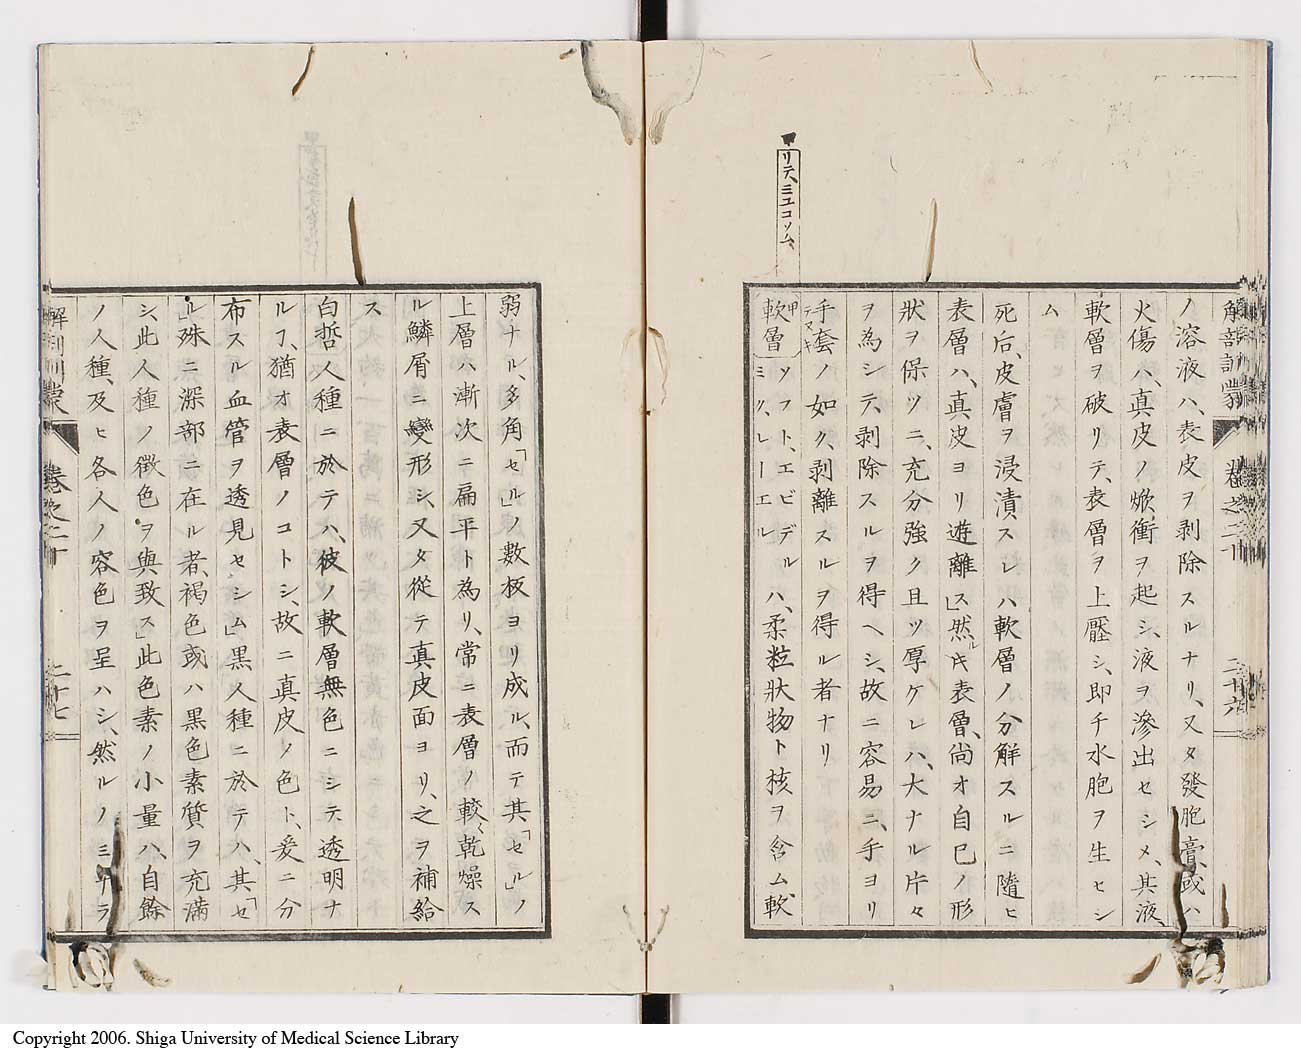 解剖訓蒙 卷之二十 二十六
ノ溶液ハ、表皮ヲ剥除スルナリ、又タ發胞膏、或ハ
火傷ハ、真皮ノ焮衝ヲ起シ、液ヲ滲出セシメ、其液、
軟層ヲ破リテ、表層ヲ上壓シ、即チ水胞ヲ生ヒシ
ム
死后、皮膚ヲ浸漬スレハ軟層ノ分解スルニ隨ヒ
表層ハ、真皮ヨリ遊離ス」然ルキ表層、尚オ自己ノ形
狀ヲ保ツニ、充分強ク且ツ厚ケレハ、大ナル片々
ヲ為シテ、剥除スルヲ得ヘシ、故ニ容易ニ、手ヨリ
手套ノ如ク、剥離スルヲ得ル者ナリ
テヌキ
甲
軟層 ソフト、エビデル ミク、レーエル ハ、柔粒狀物ト核ヲ含ム、軟
リテ、ミユコソム、
弱ナル、多角「セル」ノ數板ヨリ成ル、而テ其「セル」ノ
上層ハ漸次ニ扁平ト為リ、常ニ表層ノ較、乾燥ス
ル鱗屑ニ變形シ、又タ從テ真皮面ヨリ、之ヲ補給
ス
白哲人種ニ於テハ、彼ノ軟層無色ニシテ、透明ナ
ルヿ、猶オ表層ノコトシ、故ニ真皮ノ色ト、爰ニ分
布スル血管ヲ透見セシム」黒人種ニ於テハ、其「セ
ル」殊ニ深部ニ在ル者、褐色或ハ黒色素質ヲ充滿
シ、此人種ノ徵色ヲ與致ス」此色素ノ小量ハ、自餘
ノ人種、及ヒ各人ノ容色ヲ呈ハシ、然ルノミナラ
解剖訓蒙 卷之二十 二十七
Copyright 2006. Shiga University of Medical Science Library